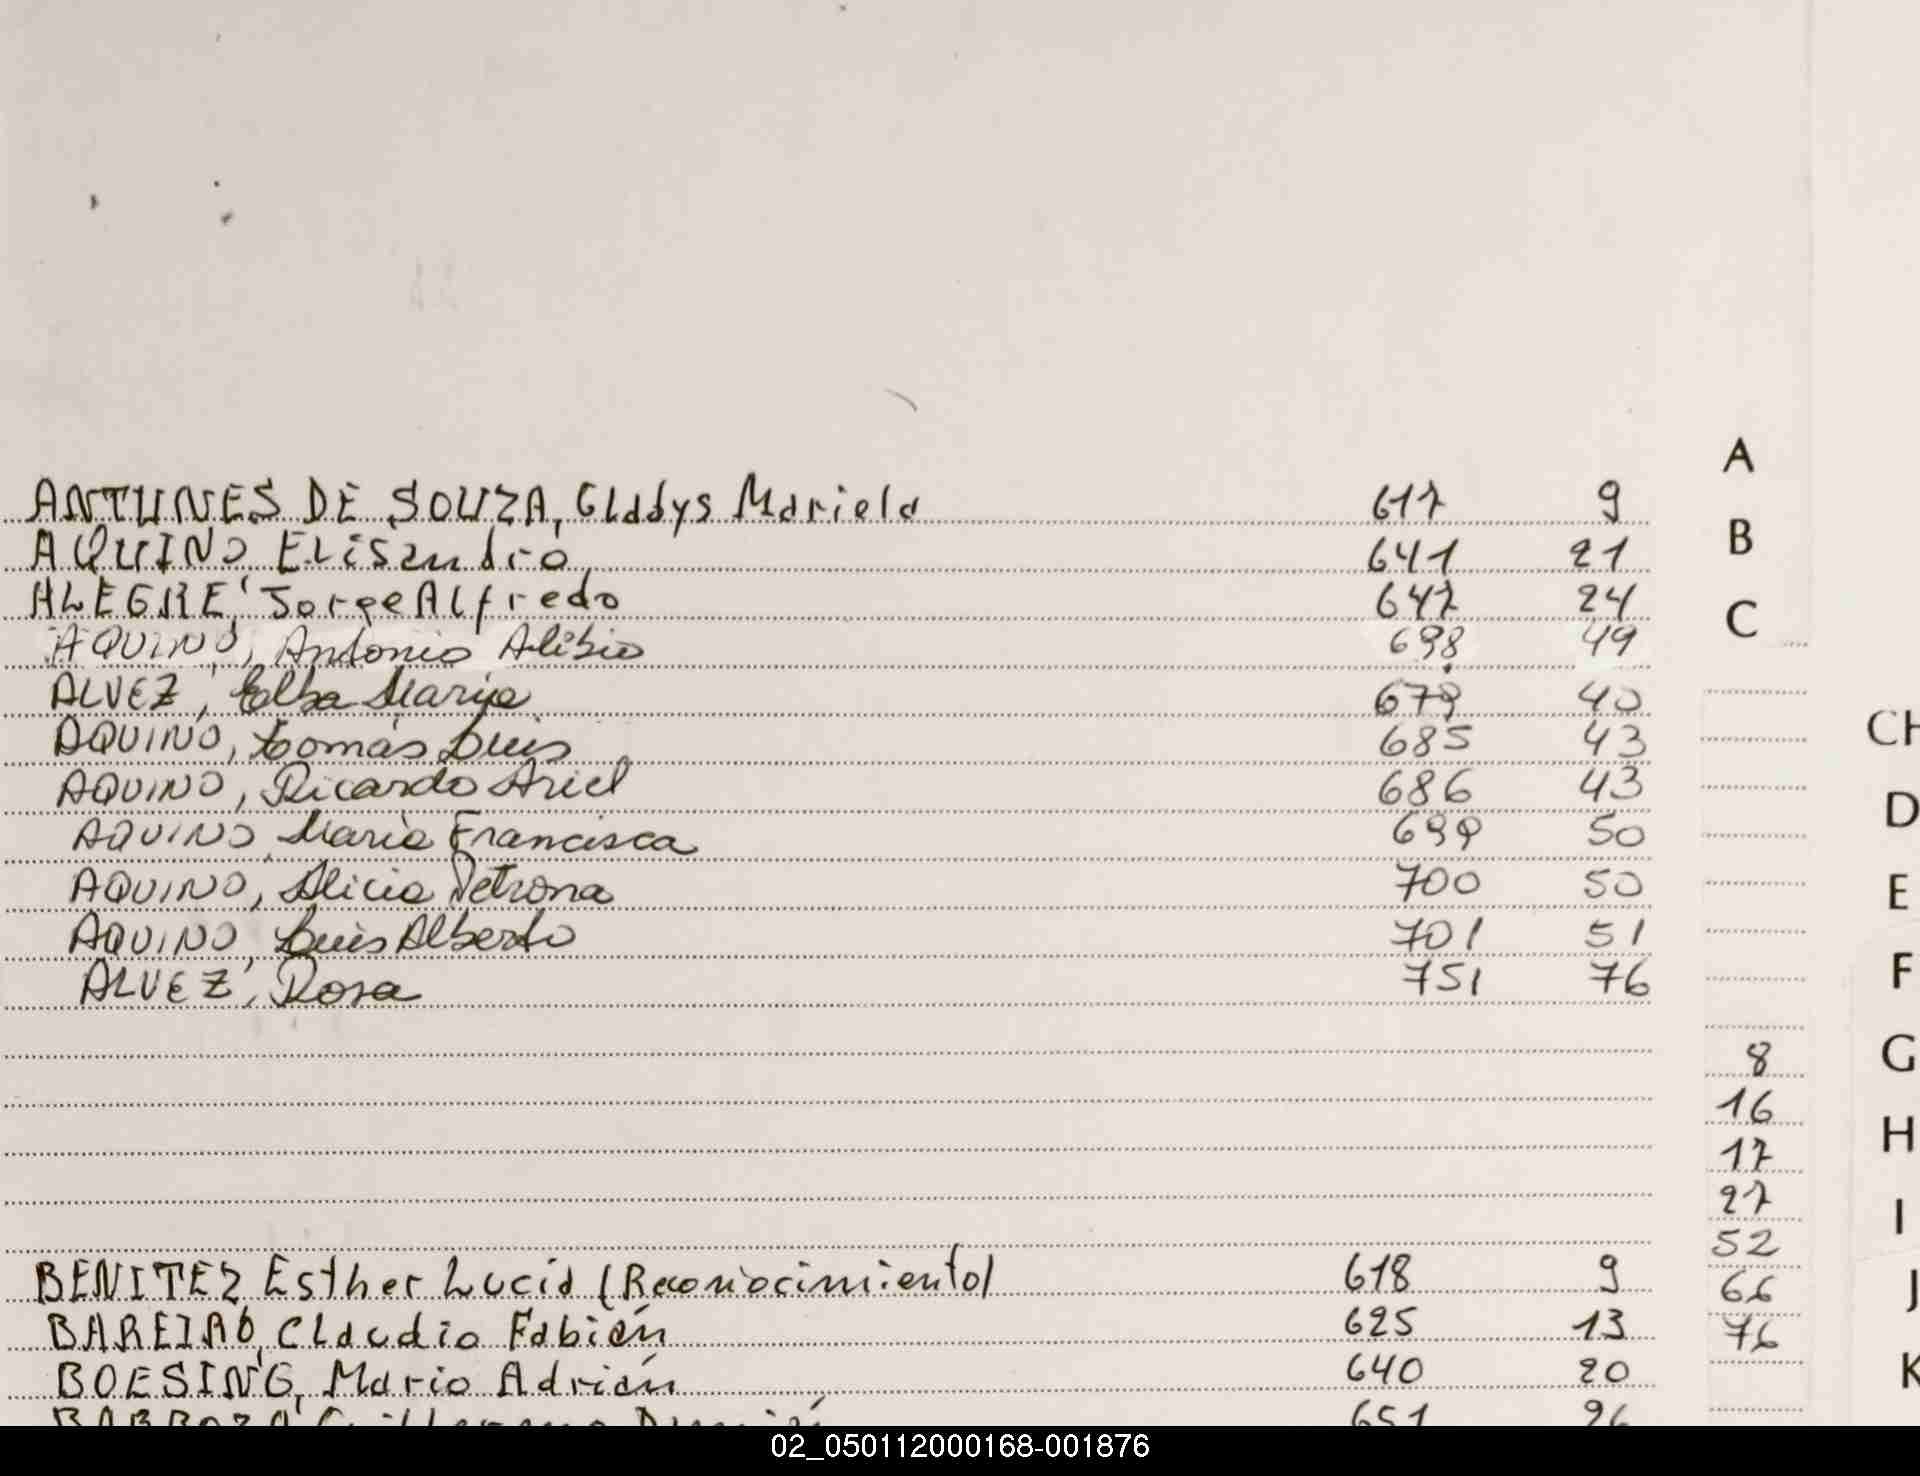 A
ANTUNES DE SOUZA, Gladys Mariela 617 9
B
AQUINO Elisandro 641 21
ALEGRE, Jorge Alfredo 647 24
C
AQUINO, Antonio Alibio 698 49
ALVEZ, Elba Maria 679 40
CH
AQUINO, Tomás Luis 685 43
AQUINO, Ricardo Ariel 686 43
D
AQUINO, Maria Francisca 699 50
AQUINO, Alicia Petrona 700 50
E
AQUINO, Luis Alberto 701 51
ALVEZ, Rosa 751 76
F
8
G
16
H
17
27
I
52
BENITEZ Esther Lucia (Reconocimiento) 618 9
66
J
BAREIRO, Claudio Fabián 625 13
76
BOESING, Mario Adrián 640 20
K
651 26
02_050112000168-001876